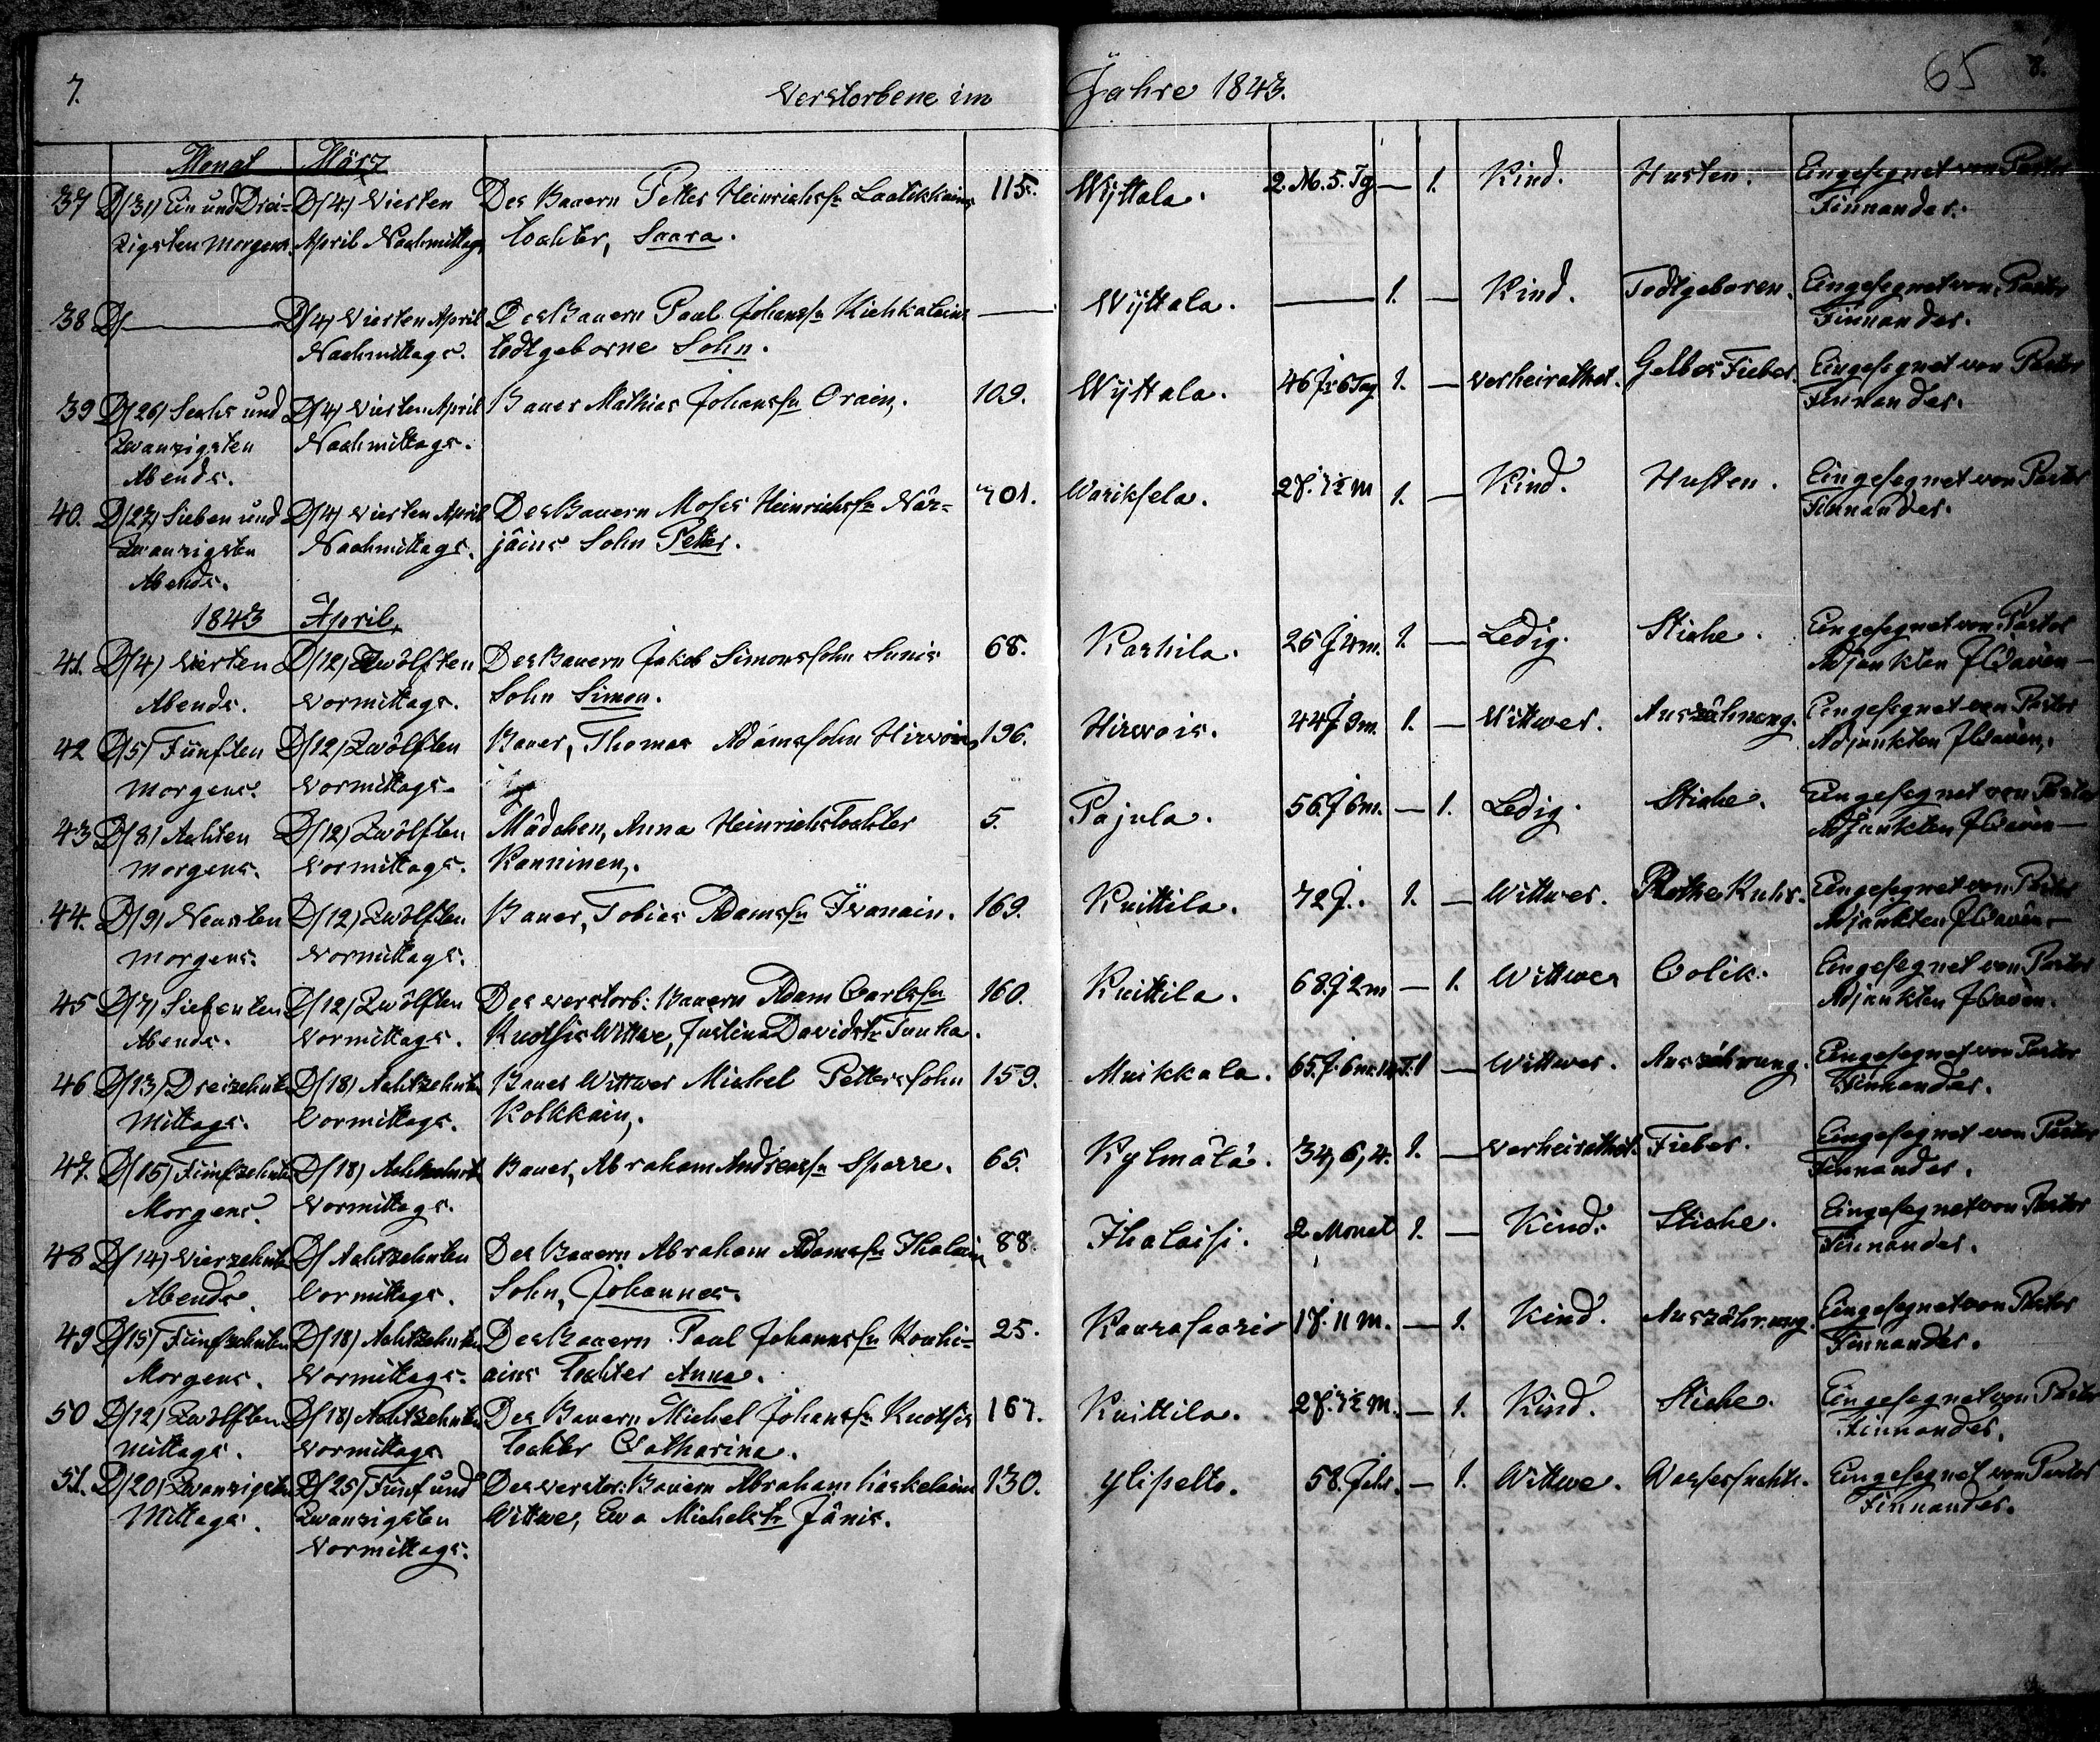 7.
Verstorbene im Jahre 1843.
65 8.
Monat März
37 D/31/ Ein und Drei= D/4/ Vierten Des Bauern Petter Heinrichsſn Laatikkains 115. Wÿttala. 2. M. 5. Tg — 1. Kind. Husten. Eingeſegnet von Pastor
zigsten Morgens. April Nachmittags Tochter, Saara. Finnander.
38 D/ — D/4/ Vierten April Des Bauern Paul Johansſn Kiehkalain — Wÿttala. — 1. — Kind. Todtgeboren. Eingeſegnet von Pastor
Nachmittags. todtgeborne Sohn. Finnander.
39 D/26/ Sechs und D/4/ Vierten April Bauer Mathias Johansſn Orain, 109. Wÿttala. 46 J: 6 Tag 1. — Verheirathet. Gelbes Fieber. Eingeſegnet von Pastor
Zwanzigsten Nachmittags. Finnander.
Abends.
40. D/27/ Sieben und D/4/ Vierten April Des Bauern Moſes Heinrichsſn När= 101. Warikſela. 2 J. 7½ M 1. — Kind. Huſten. Eingeſegnet von Pastor
Zwanzigsten Nachmittags. jäins Sohn Petter. Finnander.
Abends.
1843 April,
41. D/4/ Vierten D/12/ Zwölften Des Bauern Jakob Simonsſohn Sunis 68. Kaskila. 25 J 4 m. 1. — Ledig. Stiche. Eingeſegnet von Pastor
Abends. Vormittags. Sohn Simon. Adjunkten —
42 D/5/ Fünften D/12/ Zwölften Bauer, Thomas Adamsſohn Hirwoin, 196. Hirwois. 44 J 9 m. 1. — Wittwer. Auszährung. Eingeſegnet von Pastor
Morgens. Vormittags. Adjunkten
43 D/8/ Achten D/12/ Zwölften Mädchen, Anna Heinrichs Tochter 5. Pajula. 56 J 6 m. — 1. Ledig. Stiche. Eingeſegnet von Pastor
Morgens. Vormittags. Ronninen,. Adjunkten —
44. D/9/ Neunten D/12/ Zwölften Bauer, Tobias Adamsſn Iwanain. 169. Knittila. 72 J. 1. — Wittwer. Rothe Ruhr. Eingeſegnet von Pastor
Morgens. Vormittags. Adjunkten —
45 D/7/ Siebenten D/12/ Zwölften Des verstorb: Bauern Adam Carlsſn 160. Knittila. 68 J 2 m — 1. Wittwe Colik. Eingeſegnet von Pastor
Abends. Vormittags. Ruothſis Wittwe, Justina Davidstr Tauka. Adjunkten
46 D/13/ Dreizehnten D/18/ Achtzehnten Bauer Wittwer Michel Pettersſohn 159. Muikkala. 65. J. 6 m. 14 T. 1 — Wittwer. Auszährung. Eingeſegnet von Pastor
Mittags. Vormittags. Kolkkain,. Finnander.
47. D/15/ Fünfzehnten D/18/ Achtzehnten Bauer, Abraham Andreasſn Sparre. 65. Kylmälä. 34, 6, 4. 1. — Verheirathet. Fieber. Eingeſegnet von Pastor
Morgens. Vormittags. Finnander.
48 D/14/ Vierzehnten D/ Achtzehnten Des Bauern Abraham Adamsſn Ihalain, 88. Ihalaiſi. 2 Monat 1. — Kind. Stiche. Eingeſegnet von Pastor
Abends. Vormittags. Sohn, Johannes. Finnander.
49 D/15/ Fünfzehnten D/18/ Achtzehnten Des Bauern Paul Johannsſn Kouhi= 25. Kaurasaaris 1 J. 11 M. — 1. Kind. Auszährung. Eingeſegnet von Pastor
Morgens. Vormittags. ains Tochter Anna. Finnander.
50 D/12/ Zwölften D/18/ Achtzehnten Des Bauern Michel Johansſn Ruothſis 167. Knittila. 2 J. 7½ M. — 1. Kind. Stiche. Eingeſegnet von Pastor
Mittags. Vormittags. Tochter Catharina. Finnander.
51. D/20/ Zwanzigsten D/25/ Fünf und Des verstor: Bauern Abraham Kaskelains 130. Ylipelto. 58. Jahr. — 1. Wittwe. Waſſerſucht. Eingeſegnet von Pastor
Mittags. Zwanzigsten Wittwe, Ewa Michelstr Jänis. Finnander.
Vormittags.